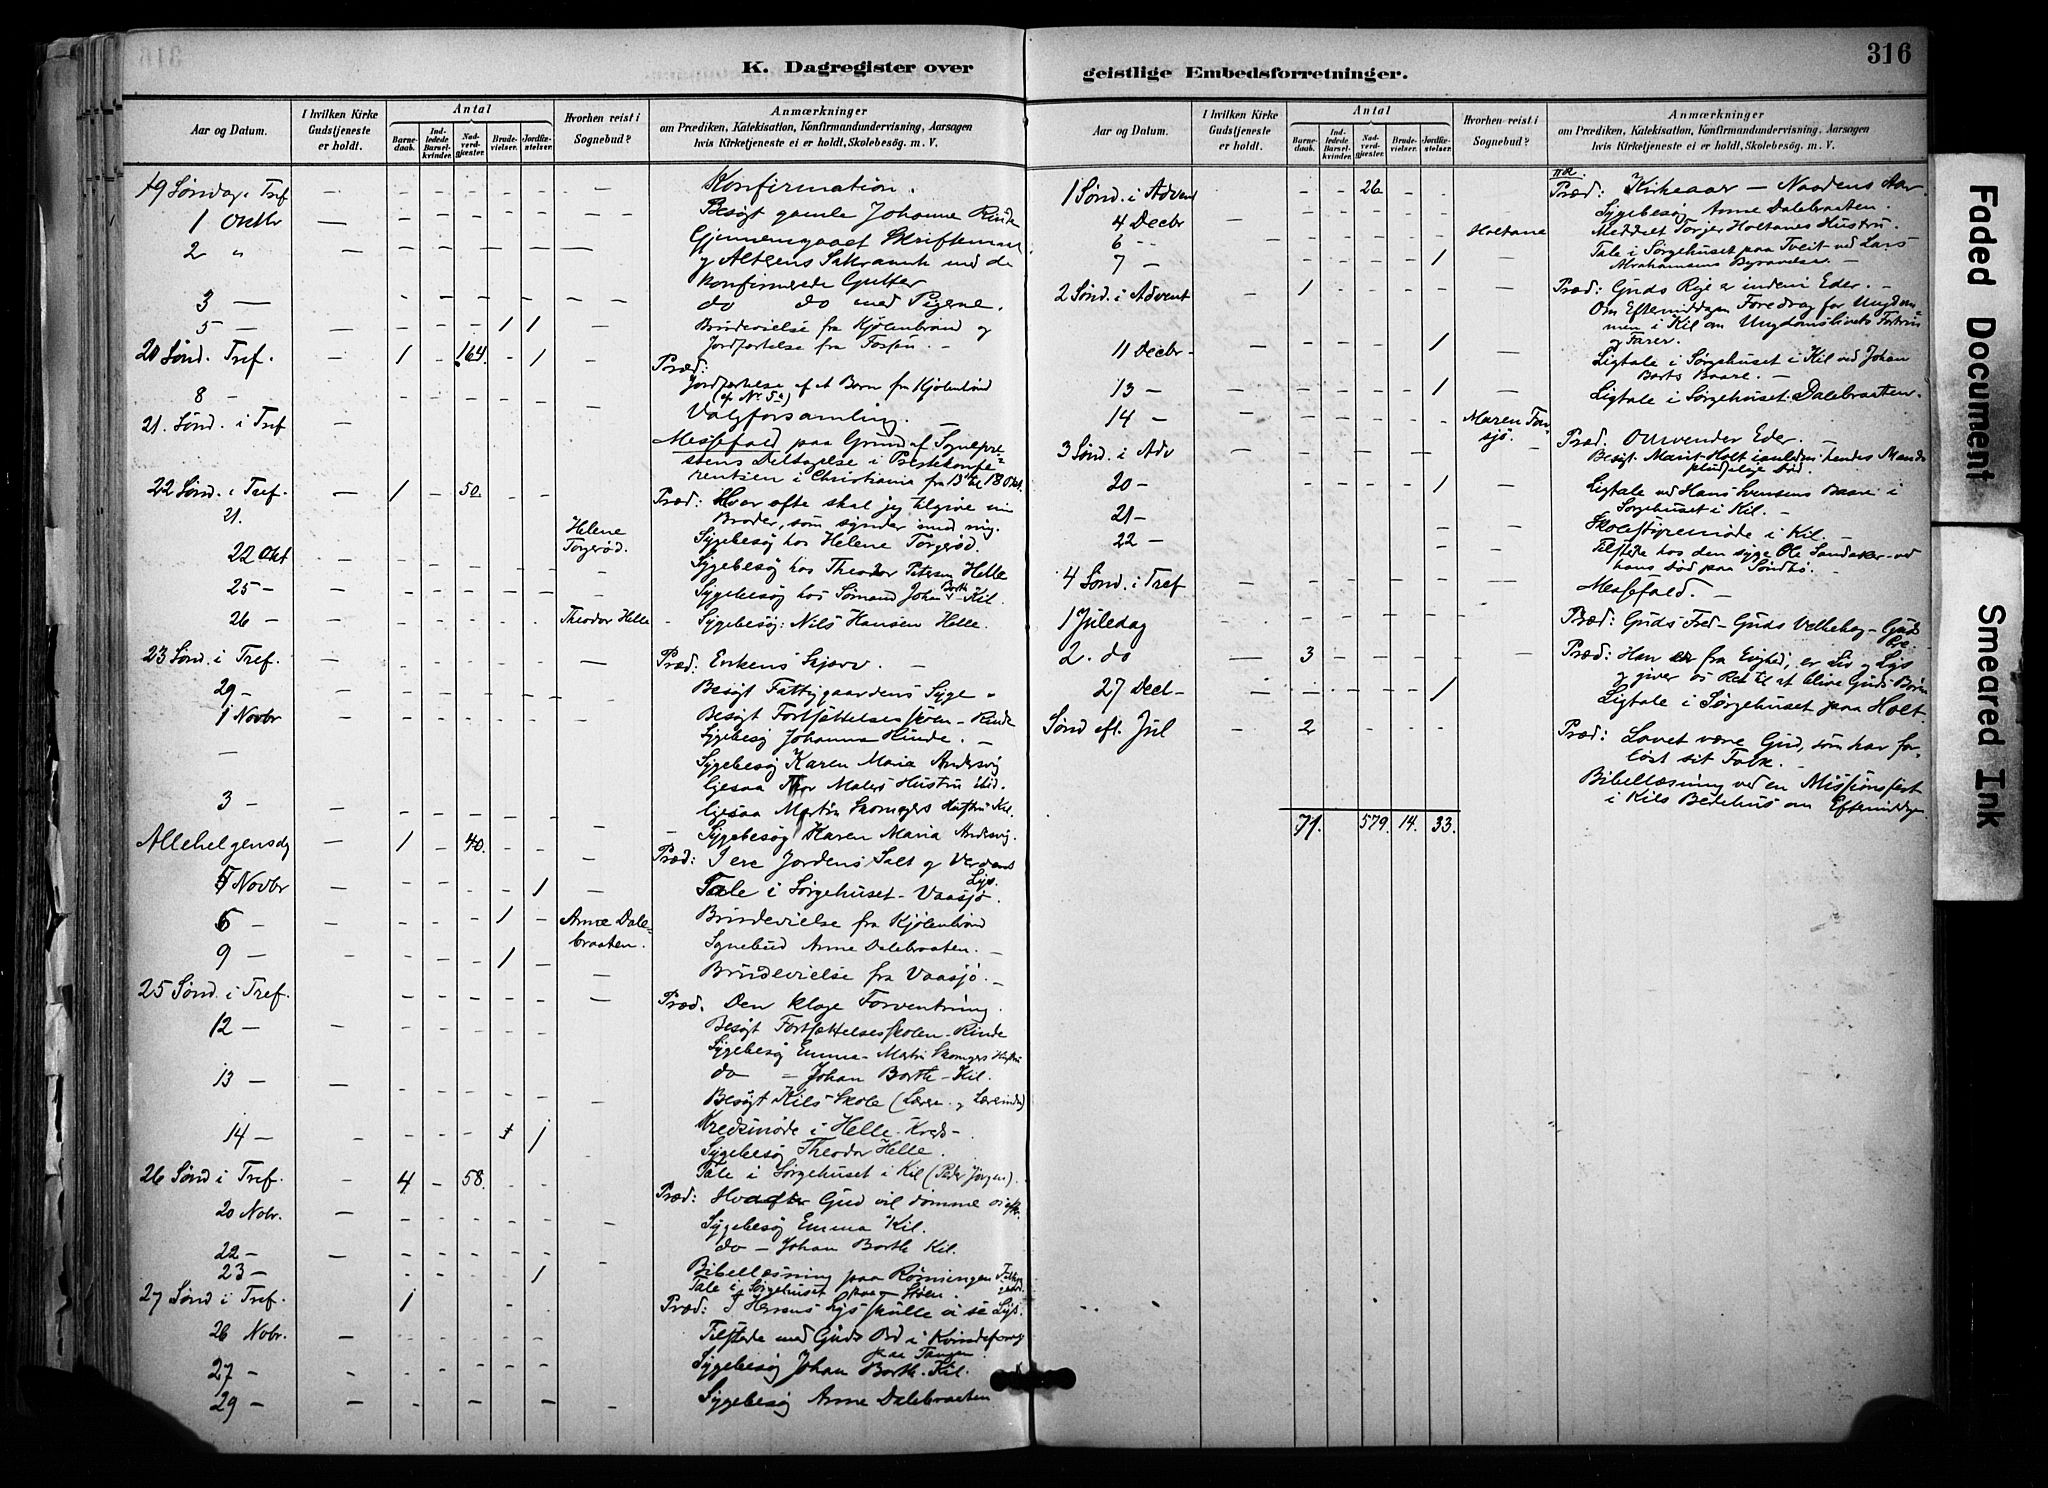 316
K. Dagregister over
Aar og Datum.
I hvilken Kirke Gudstjeneste er holdt.
Antal
Barnedaab.
Indledede Barselkvinder.
Nadverdgjæster.
Brudevielser.
Jordfæstelser.
Hvorhen reist i Sognebud?
Anmærkninger
om Prædiken, Katekisation, Konfirmandundervisning, Aarsagen
hvis Kirketjeneste ei er holdt, Skolebesøg. m. V.
19 Søndag i Tref — Konfirmation.
1 Oktbr — Besøgt gamle Johanne Rinde
2 " — Gjennemgaaet Skriftemaal
og Altgens Sakramente med de
konfirmerede Gutter
3 — do do med Pigerne.
5 — 1 1 — Brudevielse fra Kjølenbrønd og
Jordfæstelse fra Fossen. —
20 Sønd. Tref. 1 - 164 - 1 — Præd:
8 - Jordfæstelse af et Barn fra Kjølebrønd
(cf No 5a)
21. Sønd. i Tref — Valgforsamling. —
Messefald paa Grund af Sognepre-
stens Deltagelse i Præstekonfe-
rentsen i Christiania fra 13 til 18 Okt.
22 Sønd. i Tref. 1 - 50. - - Præd: Hvor ofte skal jeg tilgive min
Broder, som synder imod mig.
21. Helene Torgerød. Sygebesøg hos Helene Torgerød.
22 Okt — Sygebesøg hos Theodor Petersen Helle
25 — Sygebesøg hos Sømand Johan Borth Kil.
26 — Theodor Helle - Sygebesøg: Nils Hansen Helle.
23 Sønd. i Tref. — Præd: Enkens Skjærv. —
29 — Besøgt Fattiggaardens Syge -
1 Novbr — Besøgt Fortsættelsesskolen - Rinde
Sygebesøg Johanna Rinde. —
Sygebesøg Karen Maria Andersvig
ligesaa Thor Malers Hustru ibid.
3 — ligesaa Martin Skomagers Hustru Kil.
— Sygebesøg Karen Maria Andersvig.
Allehelgensdg 1 - 40. - - Præd: I ere Jordens Salt og Verdens
Lys.
4 Novbr — 1 — Tale i Sørgehuset - Vaasjø.
6 — 1 - Anne Dalebraaten. Brudevielse fra Kjølebrønd
Sognebud Anne Dalebraaten. —
9 — 1 — Brudevielse fra Vaasjø. —
25 Sønd. i Tref. — Præd. Den kloge Forventning.
12 — Besøgt Fortsættelsesskolen - Rinde
Sygebesøg Emma - Martin Skomagers Hustru
13 — do — Johan Borth - Kil.
Besøgt Kils Skole (Lærer og Lærerinde)
14 — 1 Kredsmøde i Helle - Kreds —
Sygebesøg Theodor Helle.
Tale i Sørgehuset i Kil (Peder Jørgen).
26 Sønd i Tref. 4 - 58. - - Præd: Hvadefter Gud vil dømme os
20 Nobr. — Sygebesøg Emma Kil.
22 — do — Johan Borth Kil.
23 — 1 Bibellæsning paa Rønningen
Tale i Sørgehuset paa Støen.
27 Sønd i Tref. 1 Præd: I Herrens Lys skulle vi se Lys.
26 Nobr. — Tilstede med Guds Ord i Kvindeforeng
paa Tangen.
27 — Sygebesøg Johan Borth Kil.
29 — Sygebesøg Anne Dalebraaten
geistlige Embedsforretninger.
Aar og Datum.
I hvilken Kirke Gudstjeneste er holdt.
Antal
Barnedaab.
Indledede Barselkvinder.
Nadverdgjæster.
Brudevielser.
Jordfæstelser.
Hvorhen reist i Sognebud?
Anmærkninger
om Prædiken, Katekisation, Konfirmandundervisning, Aarsagen
hvis Kirketjeneste ei er holdt, Skolebesøg. m. V.
1 Sønd. i Advent 26 Præd: Kirkeaar — Naadens Aar
4 Decbr — Sygebesøg Anne Dalebraaten.
6 - - Holtane Meddelt Torjer Holtanes Hustru.
7 — 1 — Tale i Sørgehuset paa Tveit ved Lars
Abrahamsens Begravelse. —
2 Sønd. i Advent 1 Præd: Guds Rige er inden i Eder. —
Om Eftermiddagen Foredrag for Ungdom-
men i Kil om Ungdomslivets Fortrin
og Farer.
11 Decbr - 1 — Ligtale i Sørgehuset i Kil ved Johan
Borts Baare. —
13 — 1 — Ligtale i Sørgehuset: Dalebraaten.
14 — Maren Fossjø.
3 Sønd. i Adv Præd. Omvender Eder. —
Besøgt Marit Holt ianledn. hendes Mands
pludselige Død.
20 — 1 — Ligtale ved Hans Svensens Baare i
Sørgehuset i Kil. —
21 — Skolestyremøde i Kil. —
22 — Tilstede hos den syge Ole Sandaker ved
hans Død paa Søndbø. —
4 Sønd. i Tref Messefald. —
1 Juledag Præd: Guds Fred - Guds Velbehag - Guds
Ære.
2. do — 3 Præd: Han er fra Evighed, er Liv og Lys
og giver os Ret til at blive Guds Børn
27 Decb — 1 — Ligtale i Sørgehuset paa Holt.
Sønd eft. Jul - 2 Præd: Lovet være Gud, som har for-
løst sit Folk. —
Bibellæsning ved en Missionsfest
i Kils Bedehus om Eftermiddagen
71. 579. 14. 33.
Faded Document
Smeared Ink